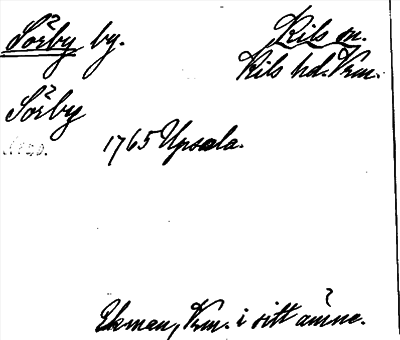 Sörby by. Kils sn.
Kils hd. Vrm.
Sörby
1765 Upsala.
Ekman, Vrm. i sitt ämne.